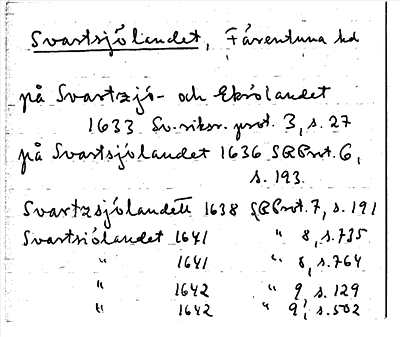 Svartsjölandet, Färentuna hd
på Svartzjö- och Ekrölandet
1633 Sv. riksr. prot. 3, s. 27
på Svartsjölandet 1636 SRProt. 6,
s. 193.
Svartzsjölandett 1638 SRProt. 7, s. 191
Svartsiölandet 1641 " 8, s. 735
" 1641 " 8, s. 764
" 1642 " 9, s. 129
" 1642 " 9, s. 502